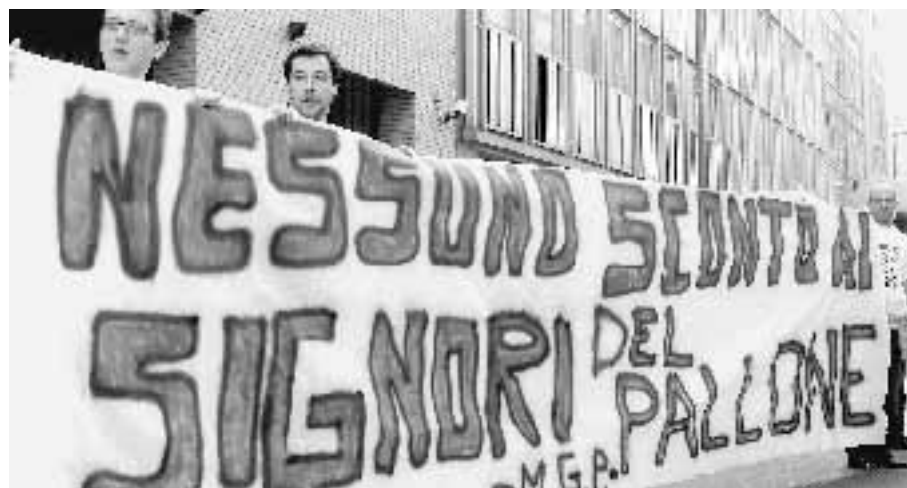 NESSUNO SCONTO AI
SIGNORI DEL PALLONE
M.G.P.